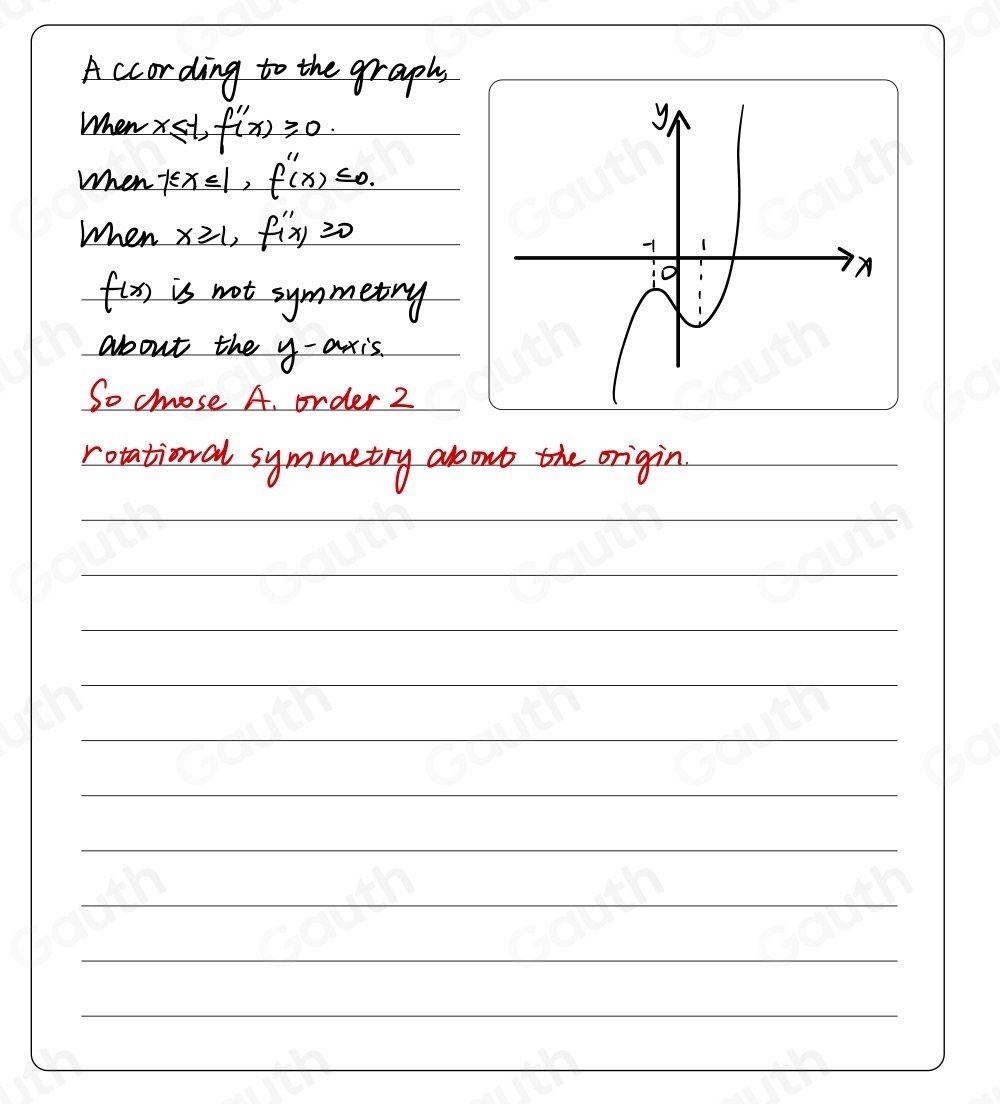 According to the graph,
When x≤-1, f''(x) ≥0.
When -1≤x≤1, f''(x) ≤0.
When x≥1, f''(x) ≥0
f(x) is not symmetry
about the y-axis.
So chose A. order 2
rotational symmetry about the origin.
y
-1
1
0
x
Gauth